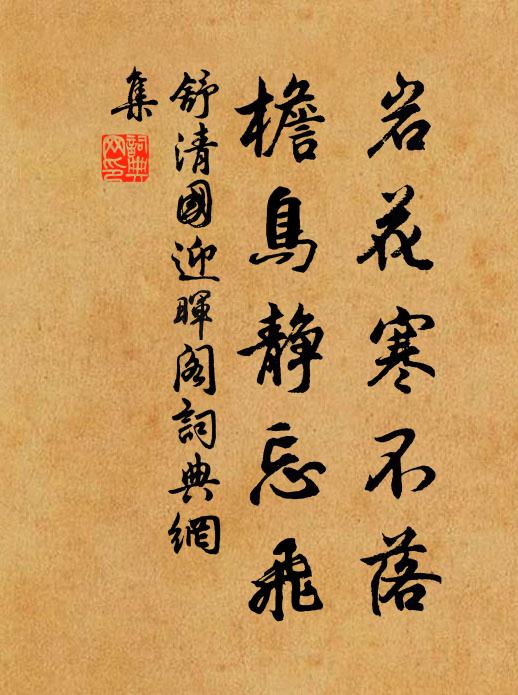 岩花寒不落
檐鳥静忘飛
舒清國迎暉阁詞典網
集
詞典
网印